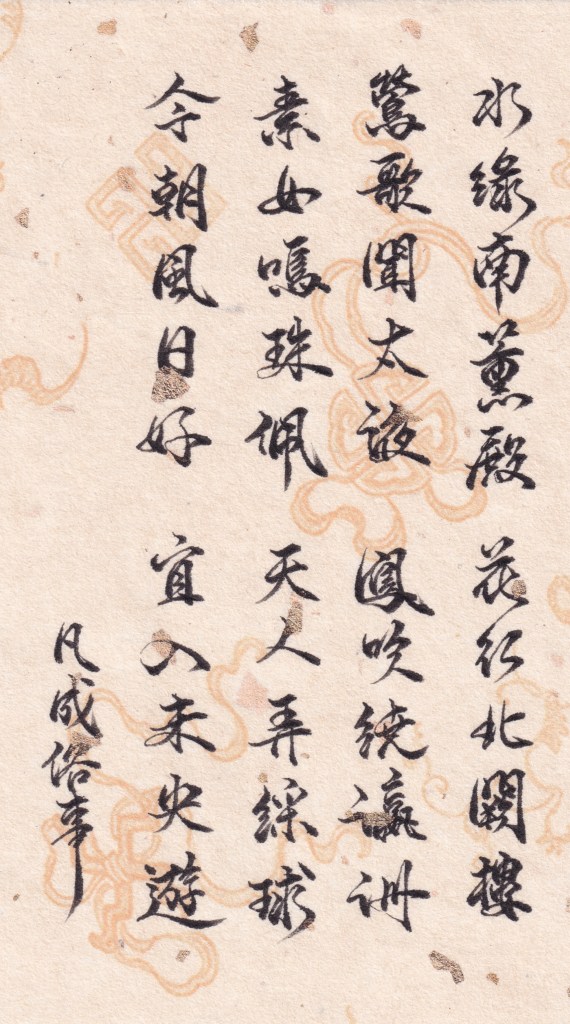 水綠南薰殿 花紅北闕樓
鶯歌聞太液 鳳吹繞瀛洲
素女鳴珠佩 天人弄綵球
今朝風日好 宜入未央遊
凡成俗事